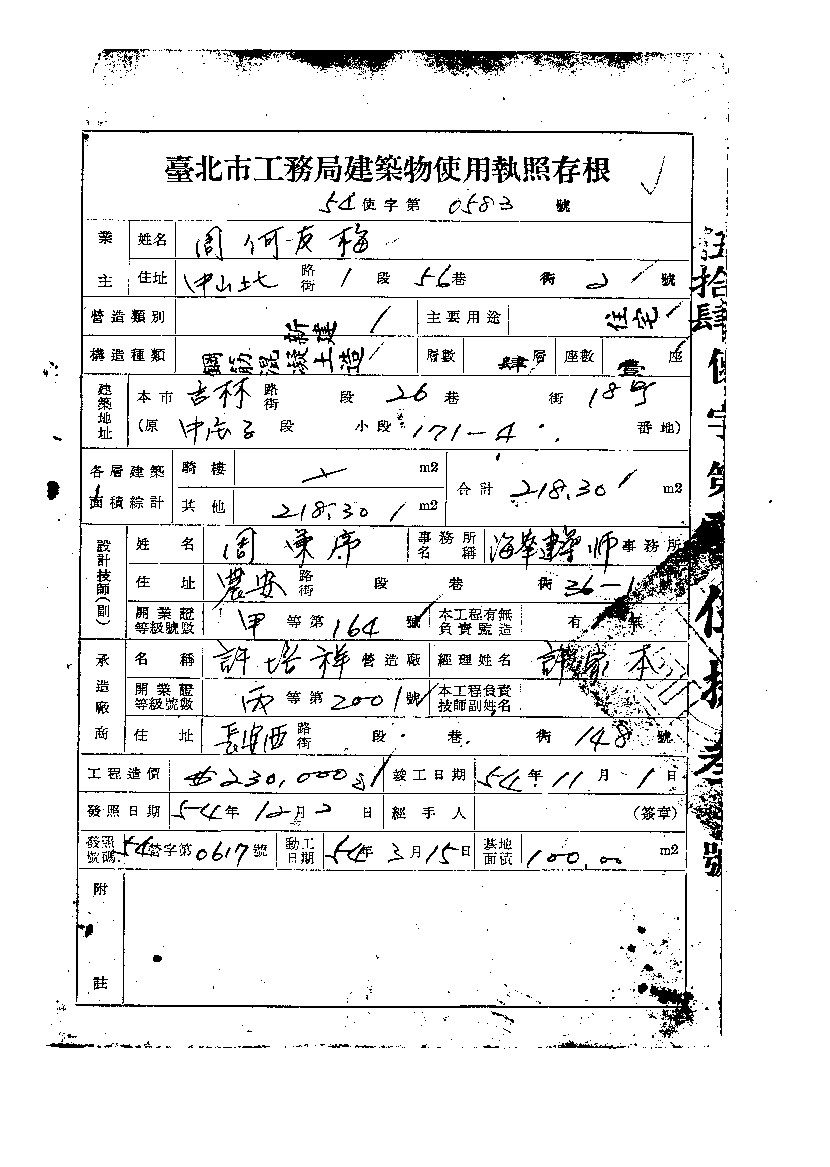 臺北市工務局建築物使用執照存根
54使字第0583號
業主 姓名 周何友梅
住址 中山北路街1段56巷 街21號
營造類別 新建 主要用途 住宅
構造種類 鋼筋混凝土造 層數 肆層 座數 壹座
建築地址 本市吉林路街 段26巷 街18号
(原中庄子段 小段171-4 番地)
各層建築面積綜計 騎樓 m2 合計218.30 m2
其他 218.30 m2
設計技師(副) 姓名 周 事務所名稱 海華建築師事務所
住址 農安路街 段 巷 街36-1
開業證等級號數 甲等第164號 本工程有無負責監造 有 無
承造廠商 名稱 許培祥營造廠 經理姓名 家本
開業證等級號數 丙等第2001號 本工程負責技師副姓名
住址 長安西路街 段 巷 街148號
工程造價 230,000 竣工日期 54年11月1日
發照日期 54年12月2日 經手人 (簽章)
發照號碼 54營字第0617號 動工日期 54年3月15日 基地面積 100.00 m2
附註
伍拾肆使字第伍捌叁號